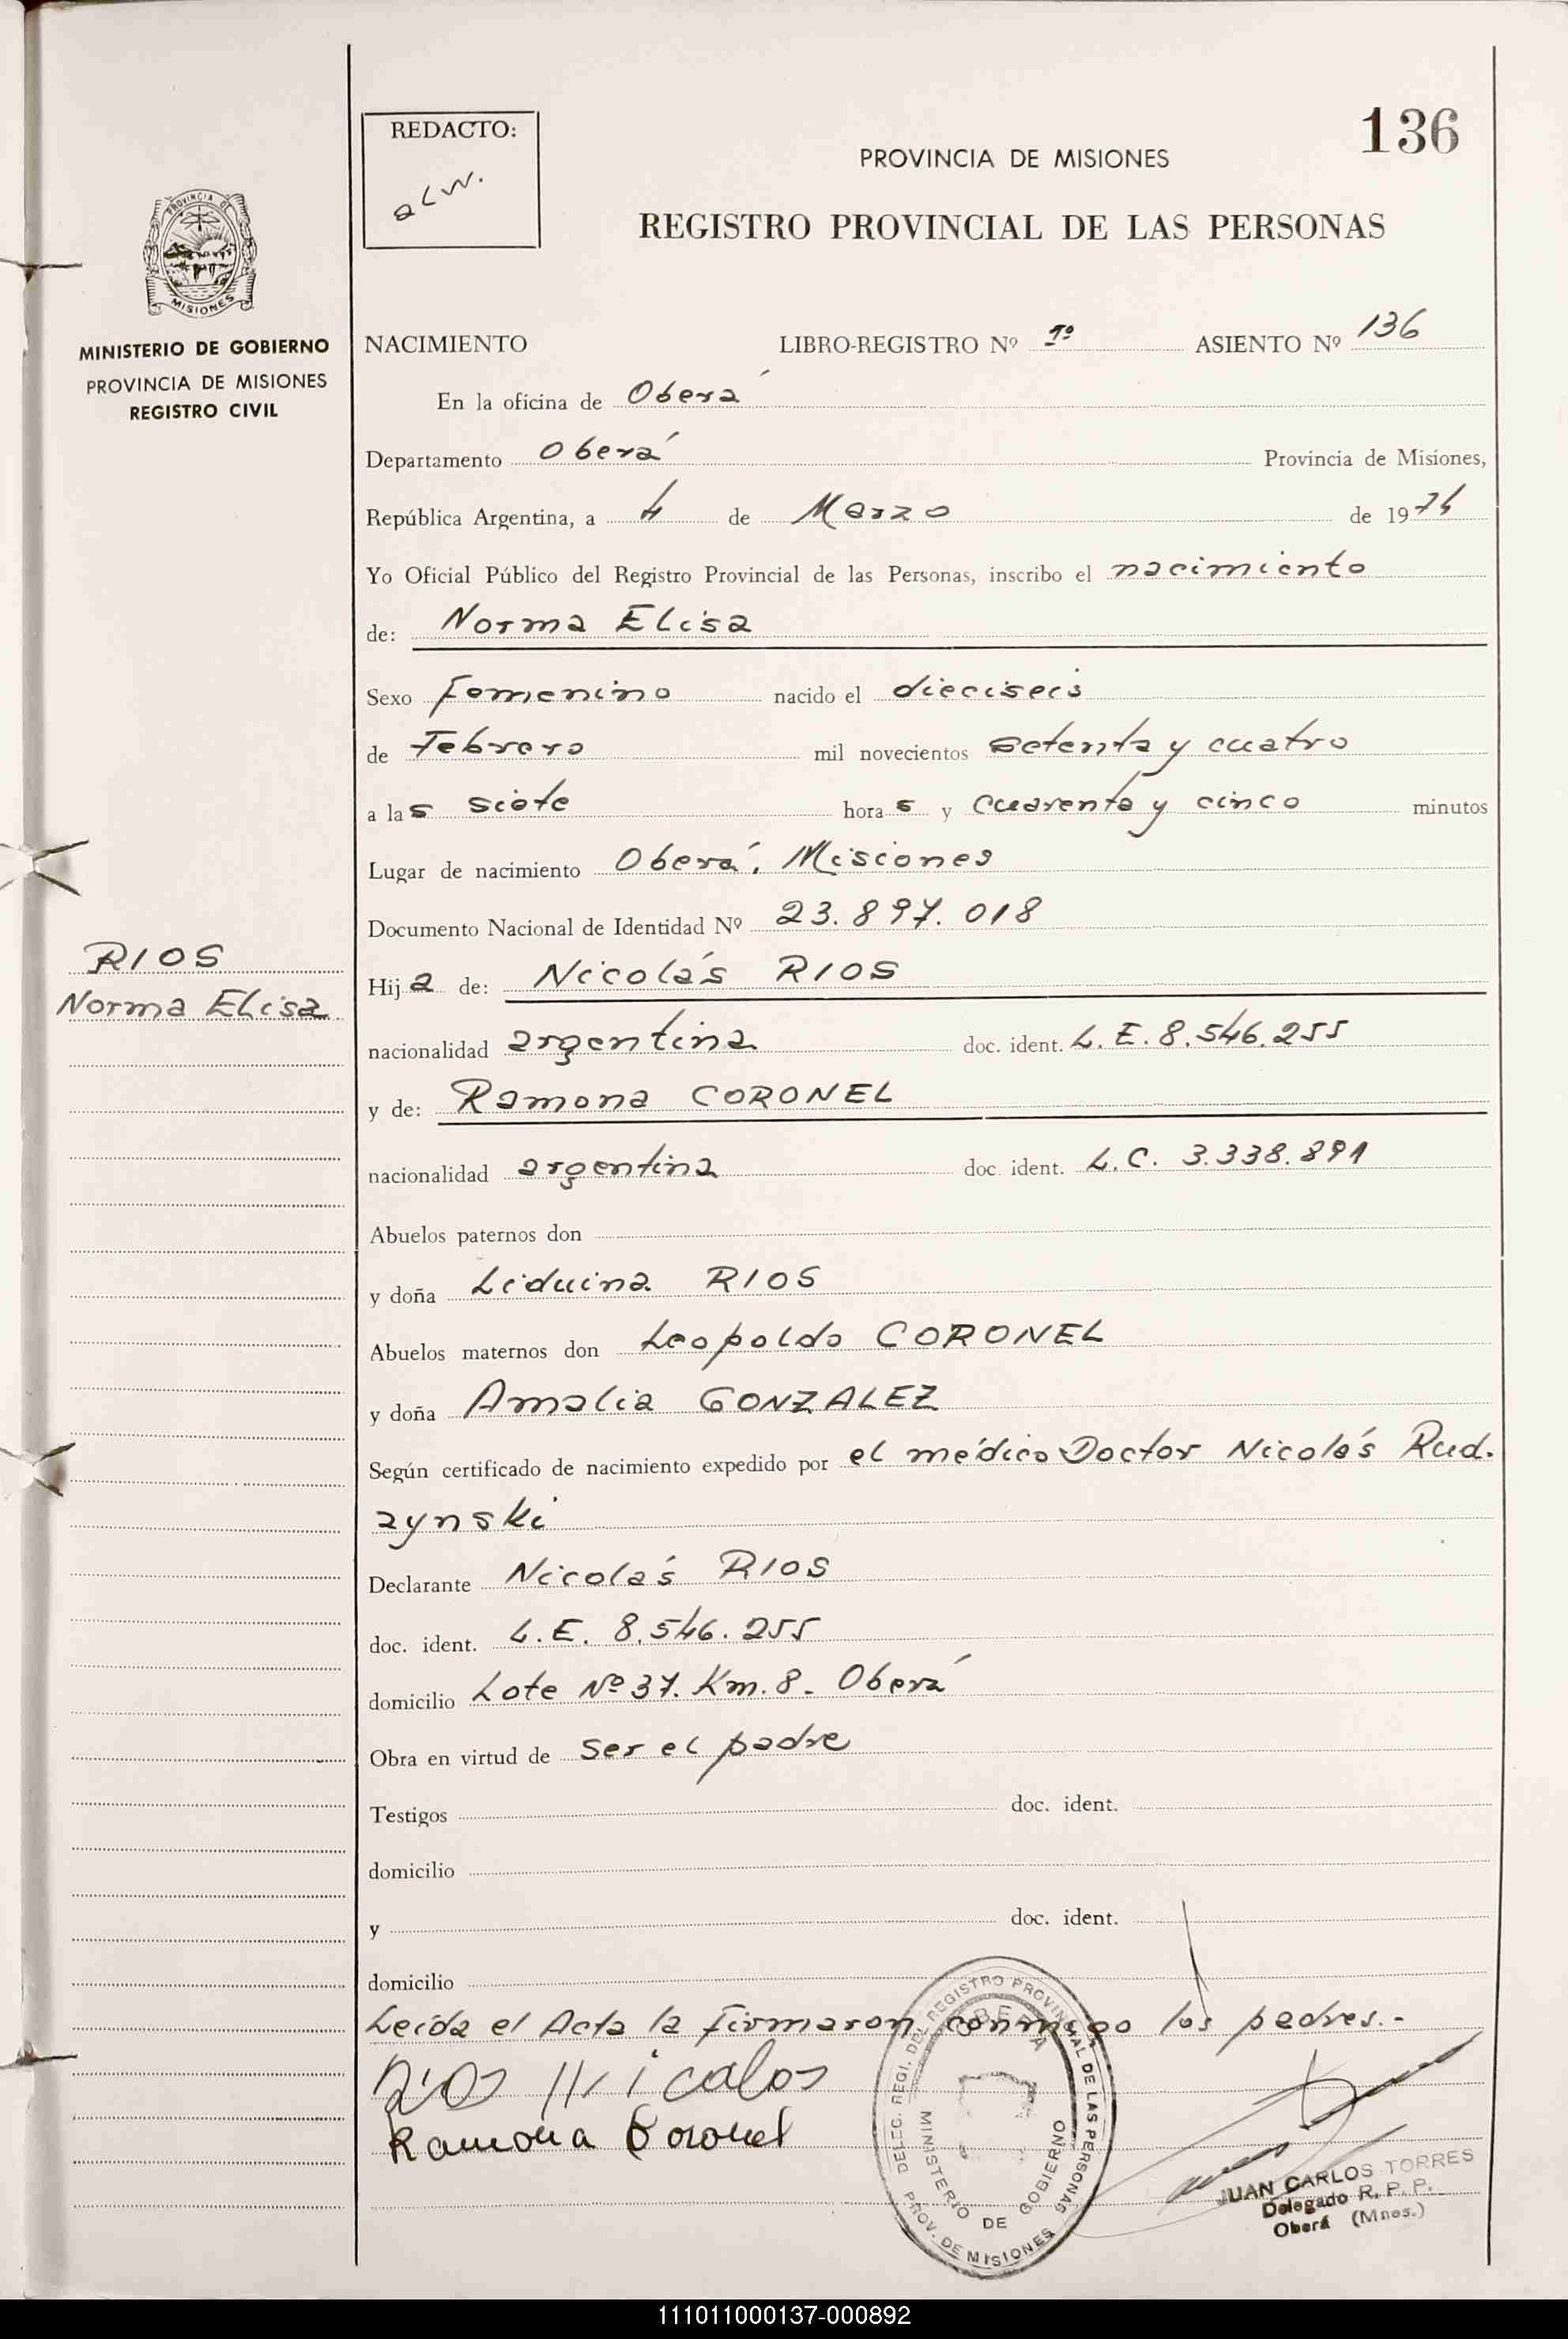 REDACTO:
alw.
136
PROVINCIA DE MISIONES
REGISTRO PROVINCIAL DE LAS PERSONAS
PROVINCIA DE
MISIONES
MINISTERIO DE GOBIERNO
PROVINCIA DE MISIONES
REGISTRO CIVIL
NACIMIENTO LIBRO-REGISTRO Nº 1º ASIENTO Nº 136
En la oficina de Oberá
Departamento Oberá Provincia de Misiones,
República Argentina, a 4 de Marzo de 1974
Yo Oficial Público del Registro Provincial de las Personas, inscribo el nacimiento
de: Norma Elisa
Sexo femenino nacido el dieciseis
de Febrero mil novecientos setenta y cuatro
a las siete horas y cuarenta y cinco minutos
Lugar de nacimiento Oberá, Misiones
Documento Nacional de Identidad Nº 23.897.018
RIOS
Norma Elisa
Hija de: Nicolás RIOS
nacionalidad argentina doc. ident. L.E. 8.546.255
y de: Ramona CORONEL
nacionalidad argentina doc. ident. L.C. 3.338.891
Abuelos paternos don
y doña Liduina RIOS
Abuelos maternos don Leopoldo CORONEL
y doña Amalia GONZALEZ
Según certificado de nacimiento expedido por el médico Doctor Nicolás Rud.
zynski
Declarante Nicolás RIOS
doc. ident. L.E. 8.546.255
domicilio Lote Nº 37. Km. 8. Oberá
Obra en virtud de ser el padre
Testigos doc. ident.
domicilio
y doc. ident.
domicilio
Leída el Acta la firmaron conmigo los padres.-
Rios Nicolas
Ramona Coronel
DELEG. REGI. DEL REGISTRO PROVINCIAL DE LAS PERSONAS
OBERA
MINISTERIO DE GOBIERNO
PROV. DE MISIONES
JUAN CARLOS TORRES
Delegado R. P. P.
Oberá (Mnes.)
111011000137-000892